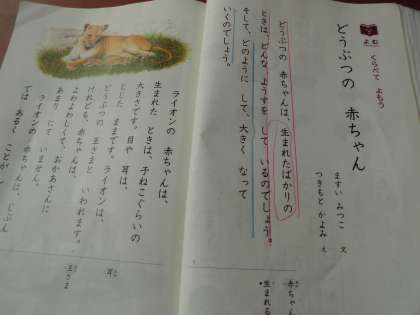 よむ
くらべて よもう
どうぶつの 赤ちゃん
ますい みつこ 文
つきもと かよみ え
どうぶつの 赤ちゃんは、生まれたばかりの
ときは、どんな ようすを して いるのでしょう。
そして、どのように して、大きく なって
いくのでしょう。
赤ちゃん
生まれる
ライオンの 赤ちゃんは、
生まれた ときは、子ねこぐらいの
大きさです。目や 耳は、
とじた ままです。ライオンは、
どうぶつの 王さまと いわれます。
けれども、赤ちゃんは、
よわよわしくて、おかあさんに
あまり にて いません。
ライオンの 赤ちゃんは、じぶん
では あるく ことが
耳
王さま